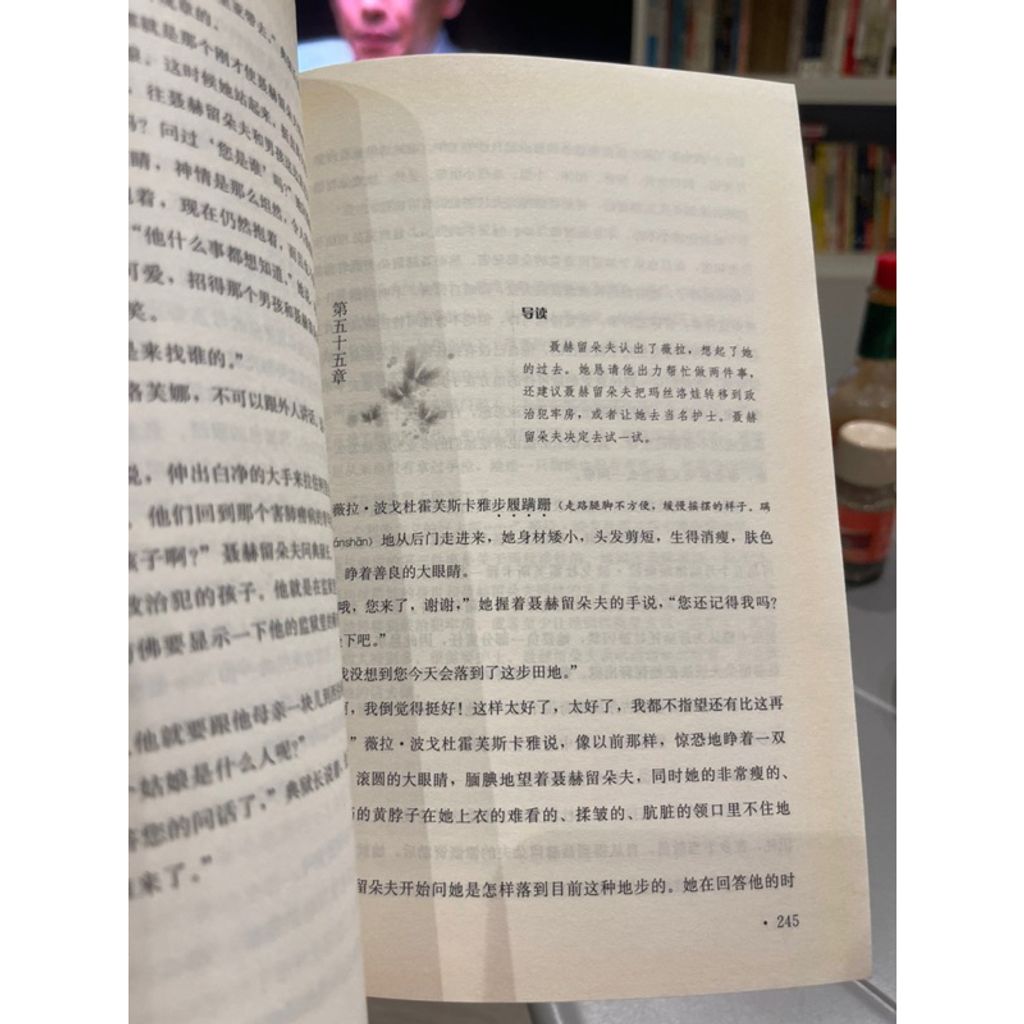 重章的。
就是那个刚才使聂赫留朵夫
这时候她站起来,
往聂赫留朵夫和男孩
吗?问过‘您是谁’吗?”
睛,神情是那么坦然,令人
着,现在仍然抱着,
“他什么事都想知道,”
可爱,招得那个男孩和聂赫
笑。
是来找谁的。”
洛芙娜,不可以跟外人讲话,
说,伸出白净的大手来拉住
他们回到那个害肺痨病的
孩子啊?”聂赫留朵夫问典狱
政治犯的孩子。他就是在监狱里
佛要显示一下他的监狱里
他就要跟他母亲一块儿到西
个姑娘是什么人呢?”
答您的问话了,”典狱长说着
来了。”
第五十五章
导读
聂赫留朵夫认出了薇拉,想起了她
的过去。她恳请他出力帮忙做两件事,
还建议聂赫留朵夫把玛丝洛娃转移到政
治犯牢房,或者让她去当名护士。聂赫
留朵夫决定去试一试。
薇拉·波戈杜霍芙斯卡雅步履蹒跚(走路腿脚不方便,缓慢摇摆的样子。蹒
ánshān)地从后门走进来,她身材矮小,头发剪短,生得消瘦,肤色
睁着善良的大眼睛。
哦,您来了,谢谢,”她握着聂赫留朵夫的手说,“您还记得我吗?
下吧。”
我没想到您今天会落到了这步田地。”
,我倒觉得挺好!这样太好了,太好了,我都不指望还有比这再
”薇拉·波戈杜霍芙斯卡雅说,像以前那样,惊恐地睁着一双
滚圆的大眼睛,腼腆地望着聂赫留朵夫,同时她的非常瘦的、
的黄脖子在她上衣的难看的、揉皱的、肮脏的领口里不住地
留朵夫开始问她是怎样落到目前这种地步的。她在回答他的时
· 245